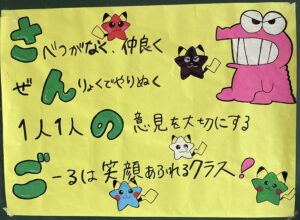 さべつがなく、仲良く
ぜんりょくでやりぬく
1人1人の意見を大切にする
ごーるは笑顔あふれるクラス！